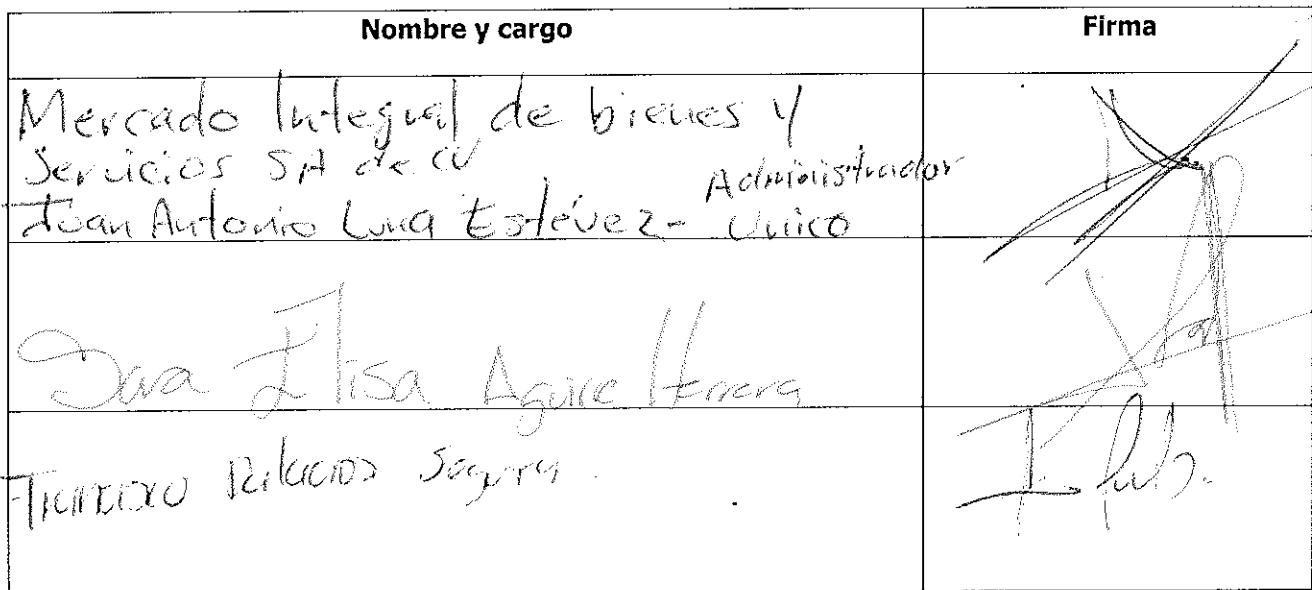 Nombre y cargo
Firma
Mercado Integral de bienes y
Servicios SA de CV
Juan Antonio Luna Estévez- Administrador Unico
Sara Elisa Aguirre Herrera
Francisco Palacios Segura